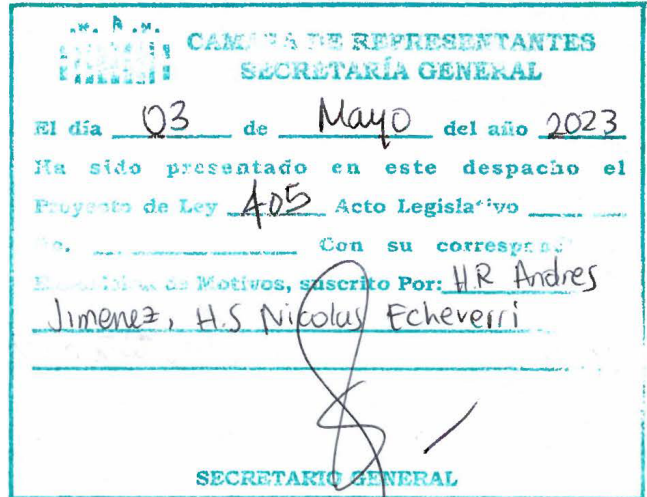 CAMARA DE REPRESENTANTES
SECRETARÍA GENERAL
El día 03 de Mayo del año 2023
Ha sido presentado en este despacho el
Proyecto de Ley 405 Acto Legislativo
Con su
de Motivos, suscrito Por: H.R Andres
Jimenez, H.S Nicolas Echeverri
SECRETARIO GENERAL